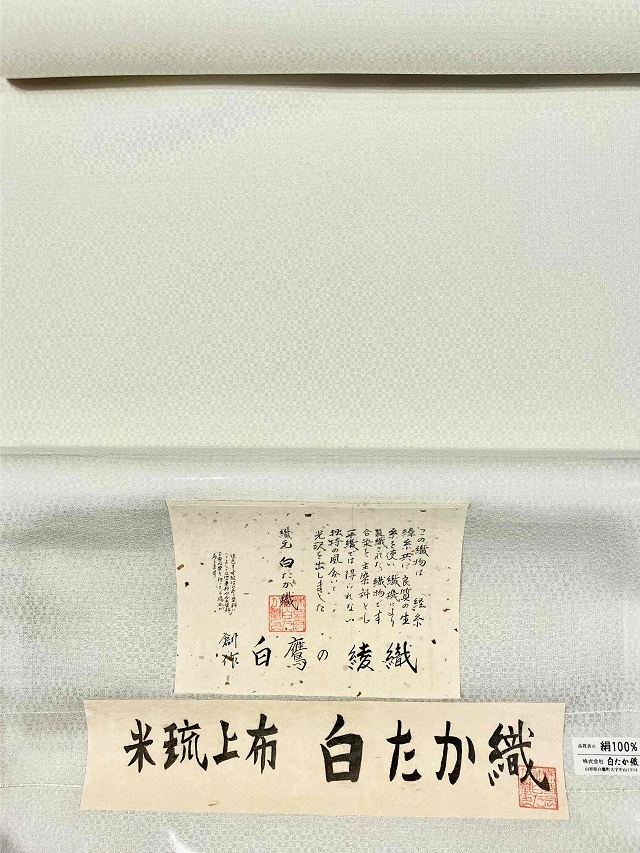 この織物は 経糸
緯糸共に良質の生
糸を使い 織機により
製織された織物です
合染を主染料とし
平織では得られない
独特の風合いと
光沢を出しました
織元 白たか織
創作 白鷹の綾織
米琉上布 白たか織
品質表示 絹100%
株式会社 白たか織